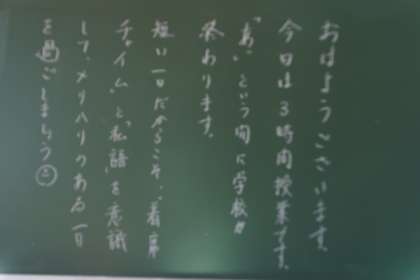 おはようございます。
今日は3時間授業です。
「あっ」という間に学校が
終わります。
短い一日だからこそ、「着席
チャイム」と「私語」を意識
して、メリハリのある一日
を過ごしましょう☺